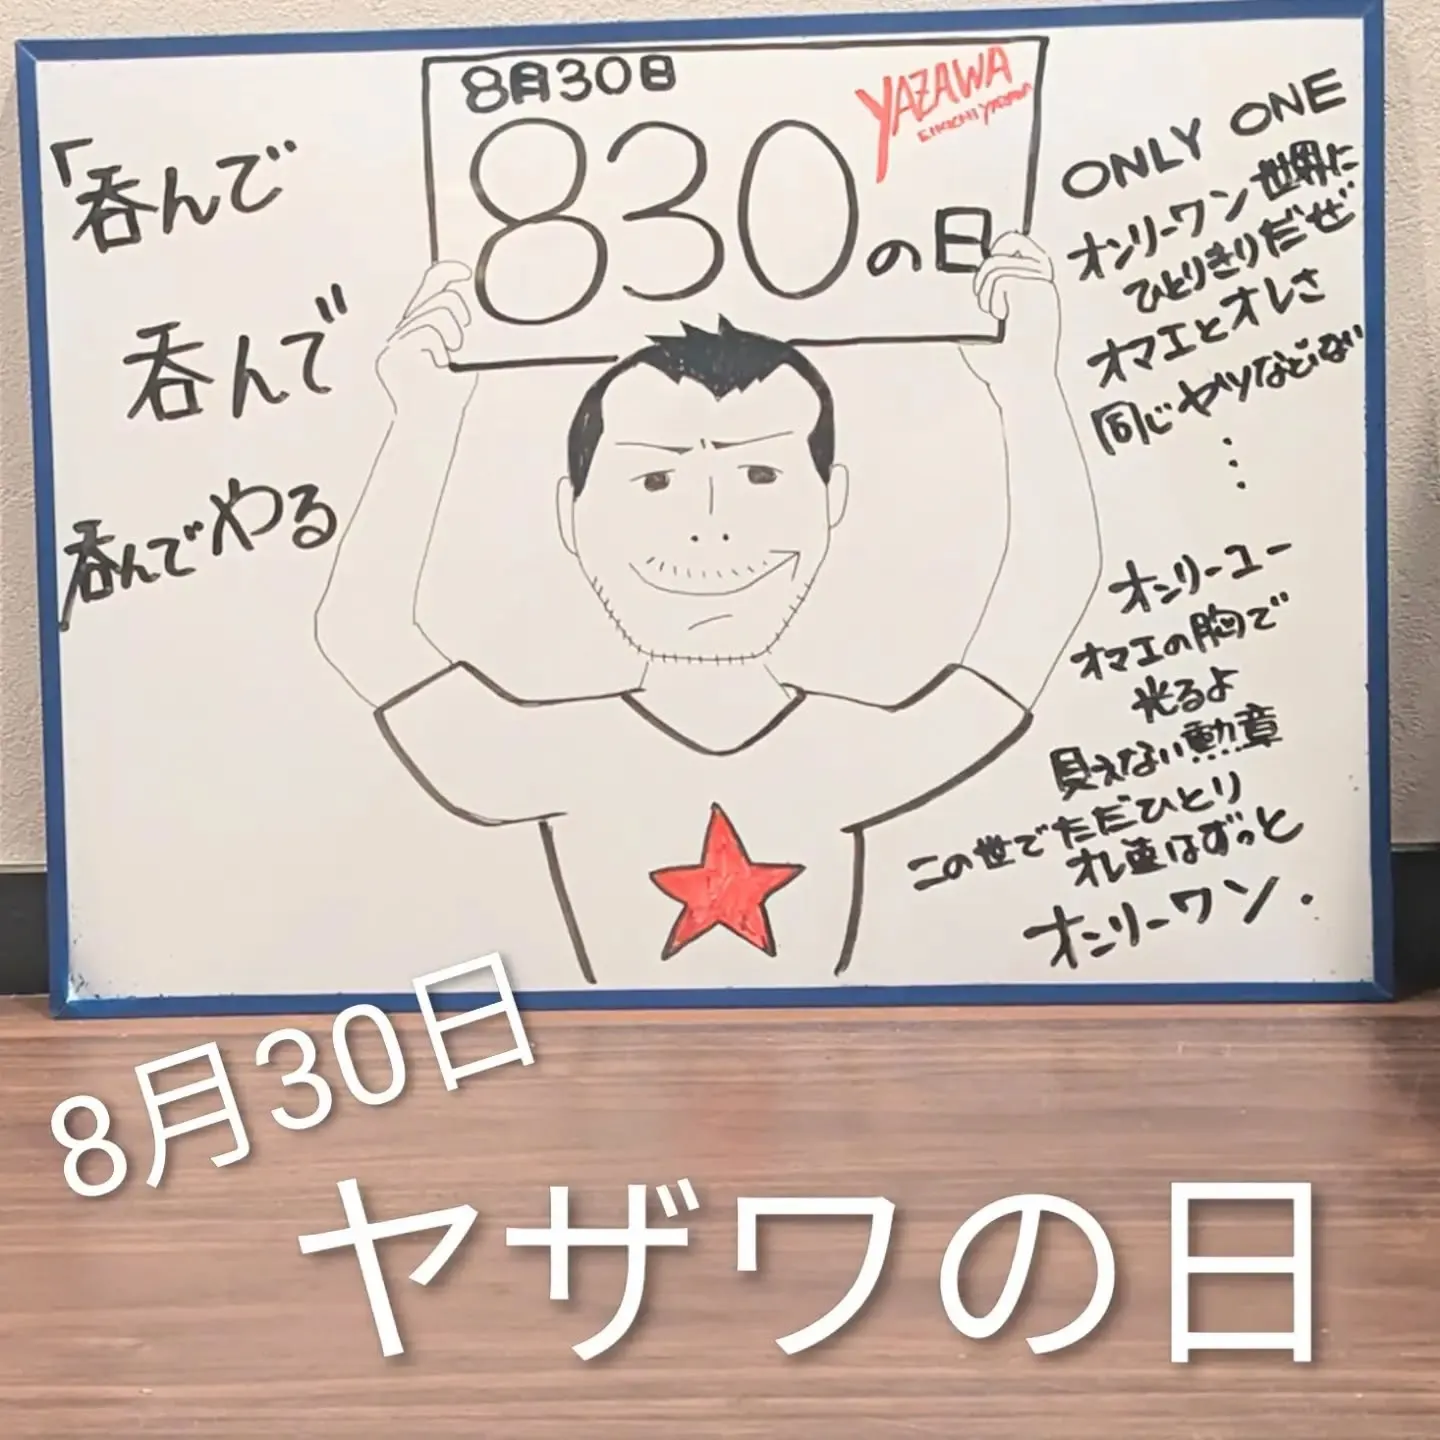 8月30日
830の日
YAZAWA
EIKICHI YAZAWA
「呑んで
呑んで
呑んでやる
ONLY ONE
オンリーワン世界に
ひとりきりだぜ
オマエとオレさ
同じヤツなどいない
⋮
オンリーユー
オマエの胸で
光るよ
見えない勲章
この世でただひとり
オレ達はずっと
オンリーワン.
8月30日
ヤザワの日